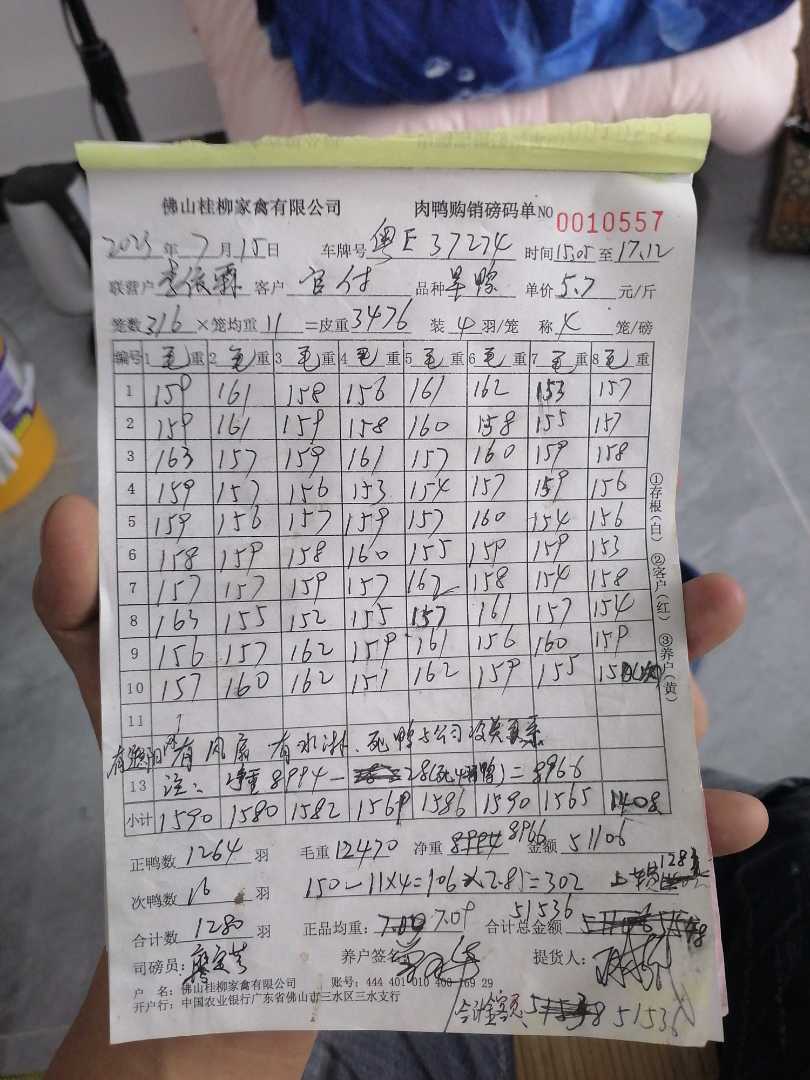 佛山桂柳家禽有限公司 肉鸭购销磅码单NO 0010557
2023年7月15日 车牌号 粤E 37274 时间15.05至17.12
联营户 客户 官付 品种 单价 5.7 元/斤
笼数316×笼均重11=皮重3476 装4羽/笼 称4笼/磅
编号 1毛重 2毛重 3毛重 4毛重 5毛重 6毛重 7毛重 8毛重
1 159 161 158 156 161 162 153 157
2 159 161 159 158 160 158 155 157
3 163 157 159 161 157 160 159 158
4 159 157 156 153 154 157 159 156
5 159 156 157 159 157 160 154 156
6 158 159 158 160 155 159 159 153
7 157 157 159 157 162 158 154 158
8 163 155 152 155 157 161 157 154
9 156 157 162 159 161 156 160 159
10 157 160 162 151 162 159 155
11
有遮阳网 有风扇 有水淋、死鸭与公司没关系
13 注: 净重8994- 28(死4只鸭)=8966
小计 1590 1580 1582 1569 1586 1590 1565 1408
正鸭数1264羽 毛重12470 净重 8994 8966 金额 51106
次鸭数16羽 150-11×4=106×2.85=302 128
合计数1280羽 正品均重: 7.09 合计总金额 51536
司磅员: 养户签名 提货人:
户 名:佛山桂柳家禽有限公司 账号:444 401 010 400 169 29
开户行:中国农业银行广东省佛山市三水区三水支行
合计金额 51536
①存根(白) ②客户(红) ③养户(黄)